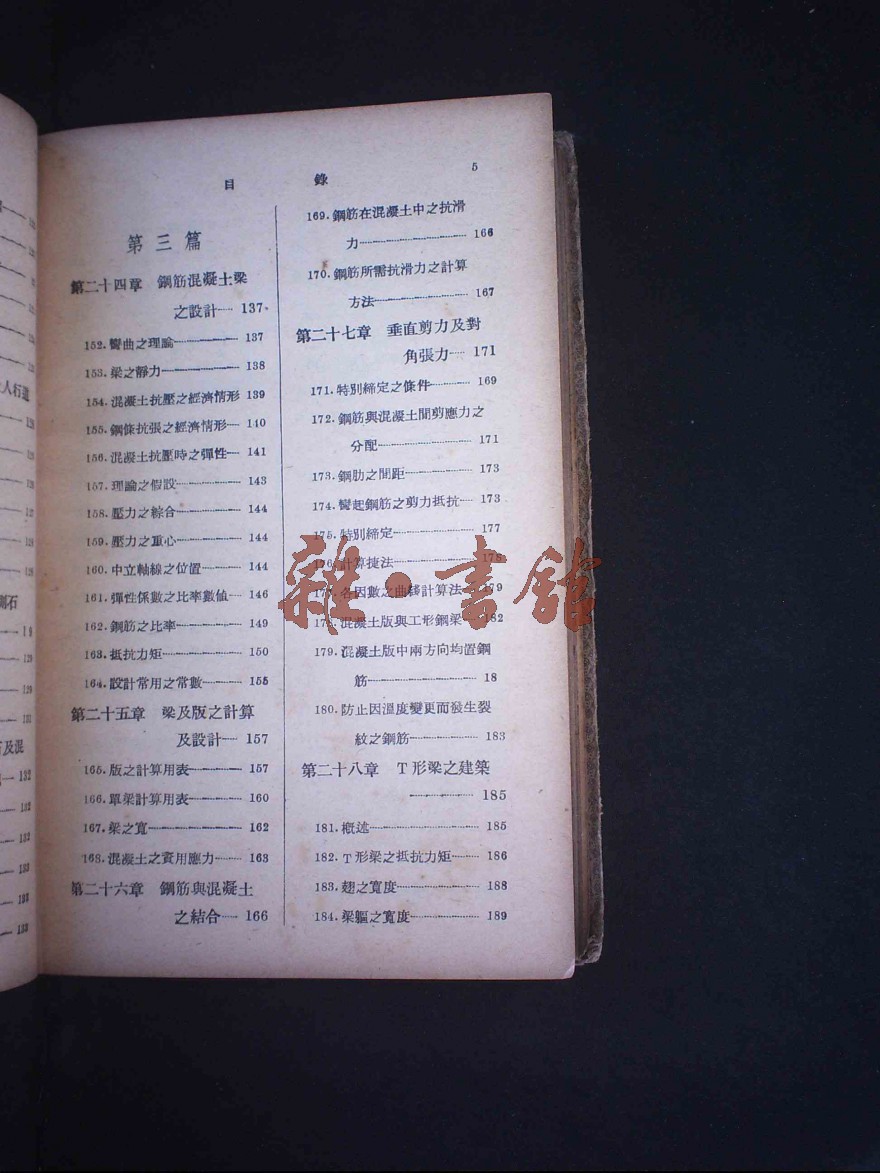 目 錄 5
第三篇
第二十四章 鋼筋混凝土梁
之設計 137
152. 彎曲之理論 137
153. 梁之靜力 138
154. 混凝土抗壓之經濟情形 139
155. 鋼條抗張之經濟情形 140
156. 混凝土抗壓時之彈性 141
157. 理論之假設 143
158. 壓力之綜合 144
159. 壓力之重心 144
160. 中立軸線之位置 144
161. 彈性係數之比率數値 146
162. 鋼筋之比率 149
163. 抵抗力矩 150
164. 設計常用之常數 155
第二十五章 梁及版之計算
及設計 157
165. 版之計算用表 157
166. 單梁計算用表 160
167. 梁之寬 162
168. 混凝土之實用應力 163
第二十六章 鋼筋與混凝土
之結合 166
169. 鋼筋在混凝土中之抗滑
力 166
170. 鋼筋所需抗滑力之計算
方法 167
第二十七章 垂直剪力及對
角張力 171
171. 特別締定之條件 169
172. 鋼筋與混凝土間剪應力之
分配 171
173. 鋼肋之間距 173
174. 彎起鋼筋之剪力抵抗 173
175. 特別締定 177
176. 計算捷法 178
名因數之曲綫計算法 179
178. 混凝土版與工形鋼梁 182
179. 混凝土版中兩方向均置鋼
筋 18
180. 防止因溫度變更而發生裂
紋之鋼筋 183
第二十八章 T形梁之建築
185
181. 概述 185
182. T形梁之抵抗力矩 186
183. 翅之寬度 188
184. 梁軀之寬度 189
雜·書館
人行道
及混
132
132
132
133
133
133